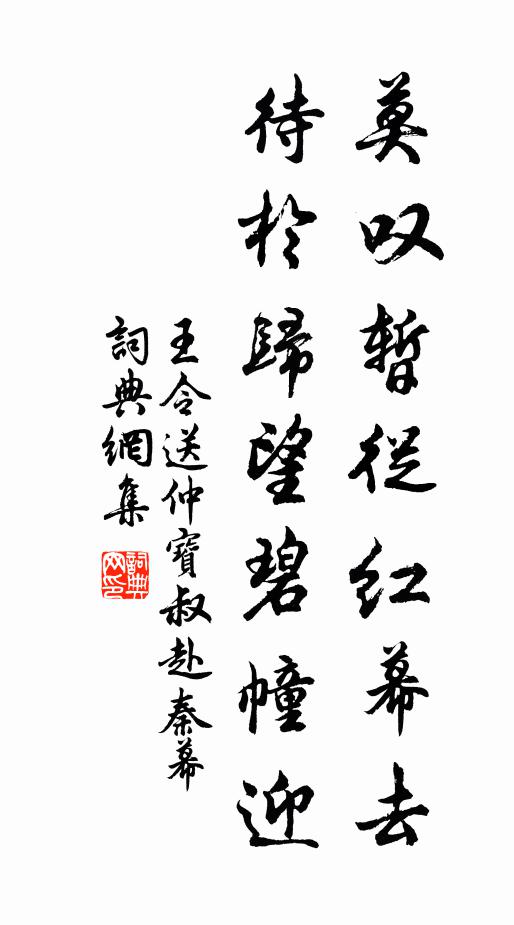 莫叹暫從紅幕去
待於歸望碧幢迎
王令送仲寶叔赴秦幕
詞典網集
詞典网印